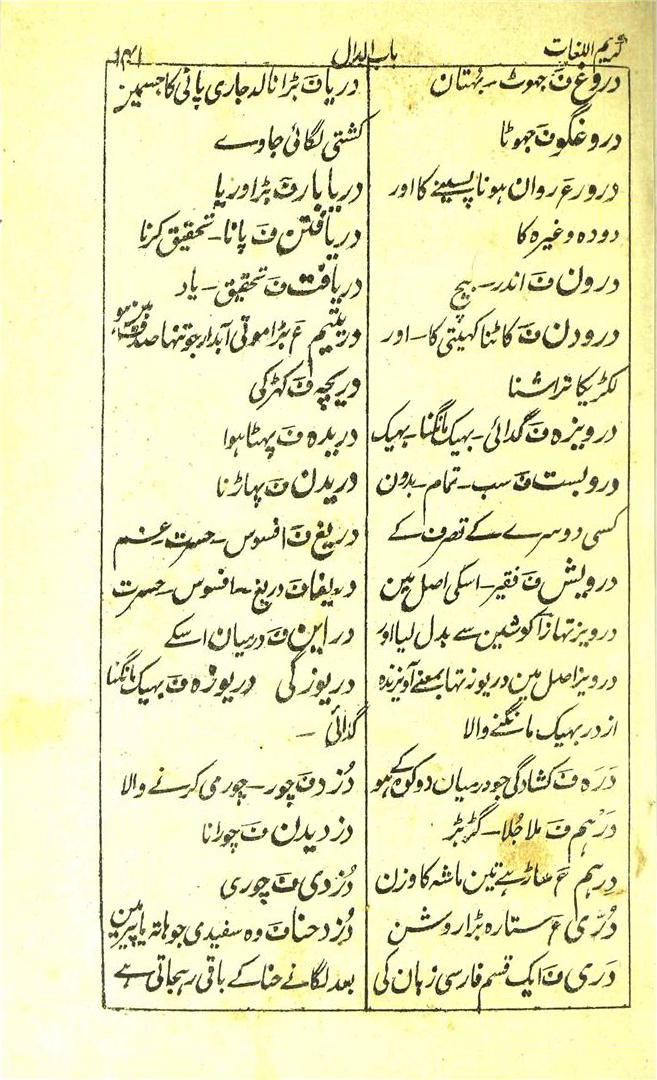 کریم اللغات باب الدال ۱۴۱
دروغ ف جھوٹ ۔ بُہتان
دروغگو ف جہوٹا
درور ع روان ہونا پسینے کا اور
دودہ وغیرہ کا
درون ف اندر ۔ بیچ
درودن ف کاٹنا کہیتی کا ۔ اور
لکڑیکا تراشنا
درویزہ ف گدائی ۔ بہیک مانگنا ۔ بہیک
دروبست ف سب ۔ تمام ۔ بدون
کسی دوسرے کے تصرف کے
درویش ف فقیر ۔ اسکی اصل مین
درویز تہا زا کو شین سے بدل لیا اور
درویز اصل مین دریوز تہا بمعنے آویزندہ
از در بہیک مانگنے والا
دَرَہ ف کشادگی جو درمیان دو کوہ کے ہو
دَرْہم ف ملا جُلا ۔ گڑبڑ
دِرہم ع ساڑہے تین ماشہ کا وزن
دُرّی ع ستارہ بڑا روشن
دَری ف ایک قسم فارسی زبان کی
دریا ف بڑا نالہ جاری پانی کا جسمین
کشتی لگائی جاوے
دریا بار ف بڑا دریا
دریافتن ف پانا ۔ تحقیق کرنا
دریافت ف تحقیق ۔ یاد
دریتیم ع بڑا موتی آبدار جو تنہا صدف مین ہو
دریچہ ف کہڑکی
دریدہ ف پہٹا ہوا
دریدن ف پہاڑنا
دریغ ف افسوس ۔ حسرت ۔ غم
دریغا ف دریغ ۔ افسوس ۔ حسرت
دراین ف درمیان اسکے
دریوزگی دریوزہ ف بہیک مانگنا
گدائی ۔
دُزد ف چور ۔ چوری کرنے والا
دزدیدن ف چورانا
دُزدی ف چوری
دُزد حنا ف وہ سفیدی جو ہاتہ یا پیر مین
بعد لگانے حنا کے باقی رہجاتی ہے